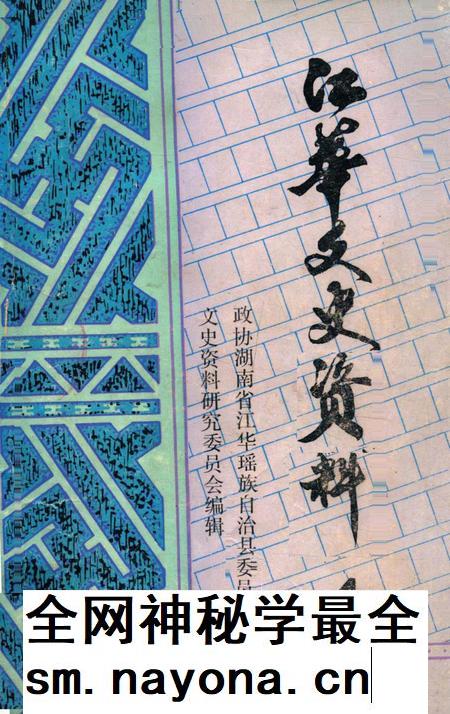 江华文史资料
政协湖南省江华瑶族自治县委员
文史资料研究委员会编辑
全网神秘学最全
sm.nayona.cn